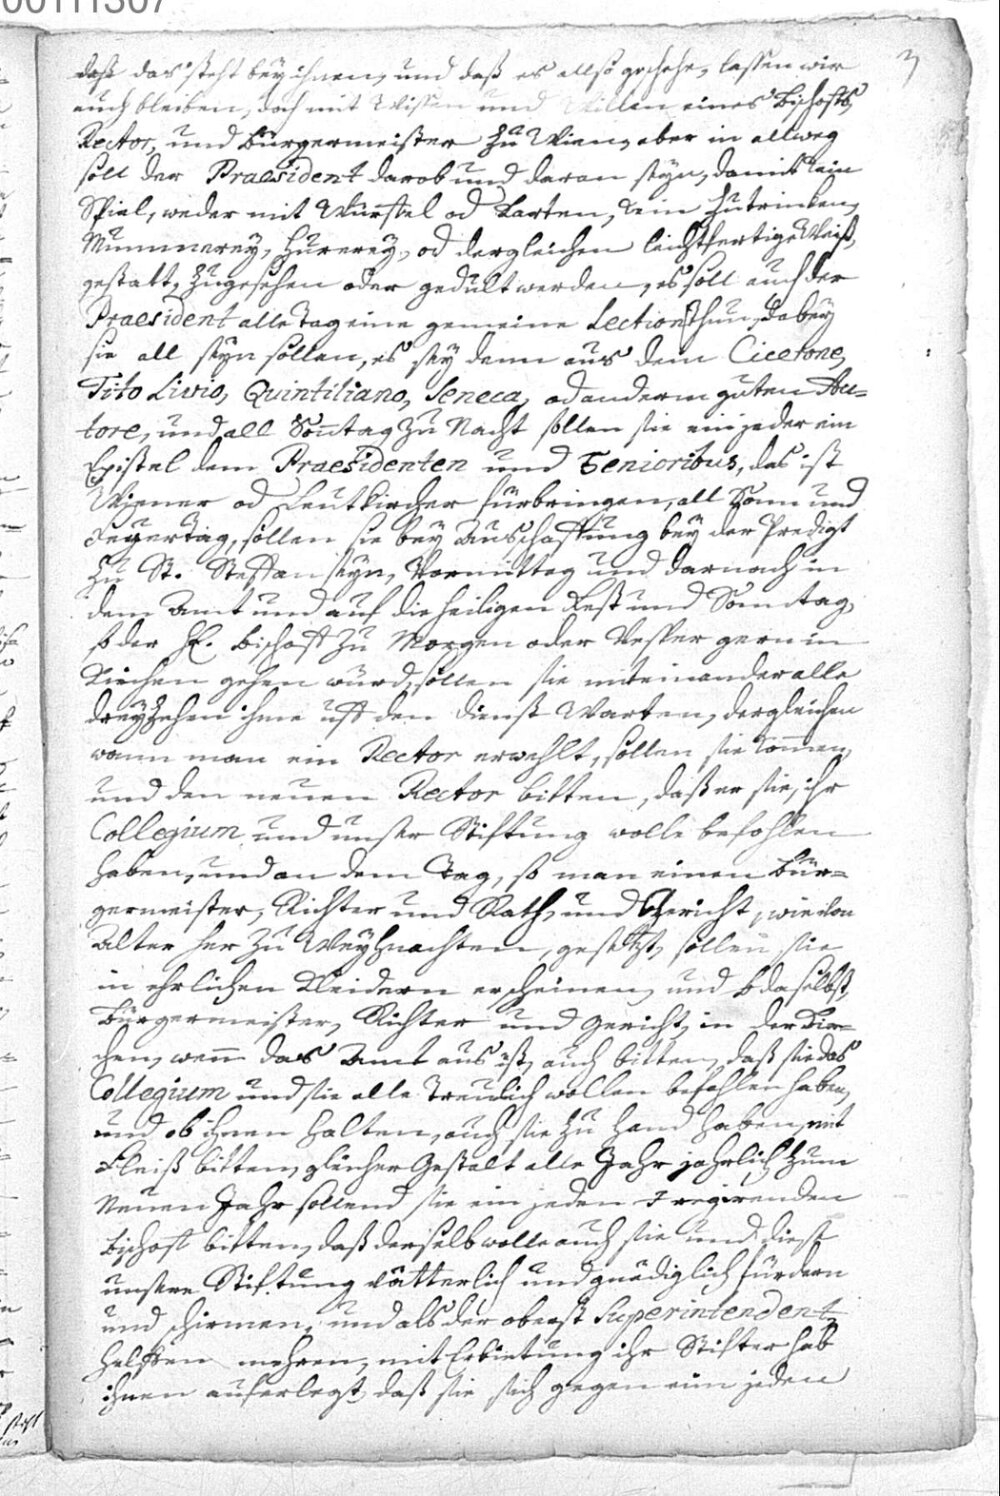 00111307
3
daß das steht bey ihnen, und daß es also geschehe, lassen wir
auch bleiben, doch mit Wissen und Willen eines Bischofs,
Rector, und Burgermeister zu Wien, aber in allweg
soll der Praesident darob und daran seyn, damit kein
Spiel, weder mit Würffel od Karten, kein Zutrinken,
Mummerey, Hurerey, od dergleichen leichtfertige Weiß
gestatt, zugesehen oder gedult werden, es soll auch der
Praesident alle Tag eine gemeine Lection thun, dabey
sie all seyn sollen, es sey denn aus dem Cicerone,
Tito Livio, Quintiliano, Seneca, od anderm guten Au-
tore, und all Sonntag zu Nacht sollen sie ein jeder ein
Epistel dem Praesidenten und Senioribus, das ist
Wiener od Leutkircher fürbringen, all Sonn und
Feyertag, sollen sie bey Abschaffung bey der Predigt
zu St. Steffan seyn, Vormittag und darnach in
dem Amt und auf die heiligen Fest und Sonntag,
so der H. Bischoff zu Morgen oder Vesper gern in
Kirchen gehen würd, sollen sie miteinander alle
dreyzehen ihme uff den Dienst warten, dergleichen
wann man ein Rector erwehlt, sollen sie kommen,
und den neuen Rector bitten, daß er sie, ihr
Collegium und unser Stifftung wolle befohlen
haben, und an dem Tag, so man einen Bur-
germeister, Richter und Rath, und Gericht, wie von
Alter her zu Weyhnachten, gesetzt, sollen sie
in ehrlichen Kleidern erscheinen, und daselbst
Burgermeister, Richter und Gericht, in der Kir-
chen, wenn das Amt aus ist, auch bitten, daß sie das
Collegium und sie alle treulich wollen befohlen haben,
und ob ihnen halten, auch sie zu Hand haben, mit
Fleiß bitten, gleicher Gestalt alle Jahr jahrlich zum
Neuen Jahr sollend sie ein jeden regirenden
Bischoff bitten, daß derselb wolle auch sie und diese
unsere Stifftung vätterlich und gnädiglich fürdern
und schirmen, und als der oberst Superintendent
helffen mehren, mit Erbietung ihr Stiffter hab
ihnen auferlegt, daß sie sich gegen ein jeden